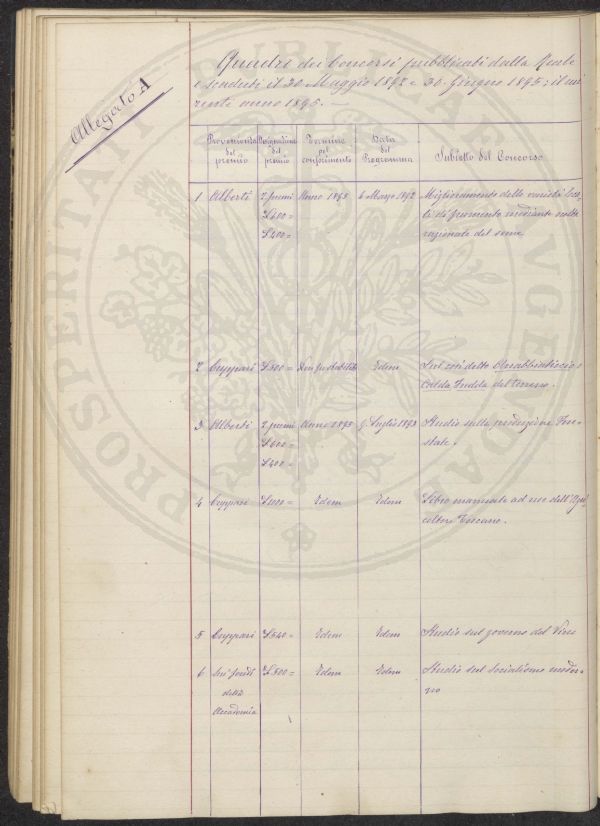 Allegato A
Quadri dei Concorsi pubblicati dalla Reale
e scaduti il 30 Maggio 1892 e 30 Giugno 1895; il
renti anno 1895. —
Provenienza del premio
Designazione del premio
Termine pel conferimento
Data del Programma
Subietto del Concorso
1 Alberti 2 premi Anno 1895 6 Marzo 1892 Miglioramento delle varietà loca-
£600= li di frumento mediante scelta
£400= razionale del seme
2 Cuppari £500= Non stabilito Idem Sul così detto Arrabbiaticcio o
Calda fredda del terreno.
3 Alberti 2 premi Anno 1895 9. Luglio 1893 Studio sulla produzione Fore-
£600= stale.
£400=
4 Cuppari £1000= Idem Idem Libro manuale ad uso dell'Agri-
coltore Toscano.
5 Cuppari £540= Idem Idem Studio sul governo del Vino
6 Sui fondi £500= Idem Idem Studio sul Socialismo moder-
della no
Accademia
PROSPERITATI PUBLICAE AUGENDAE